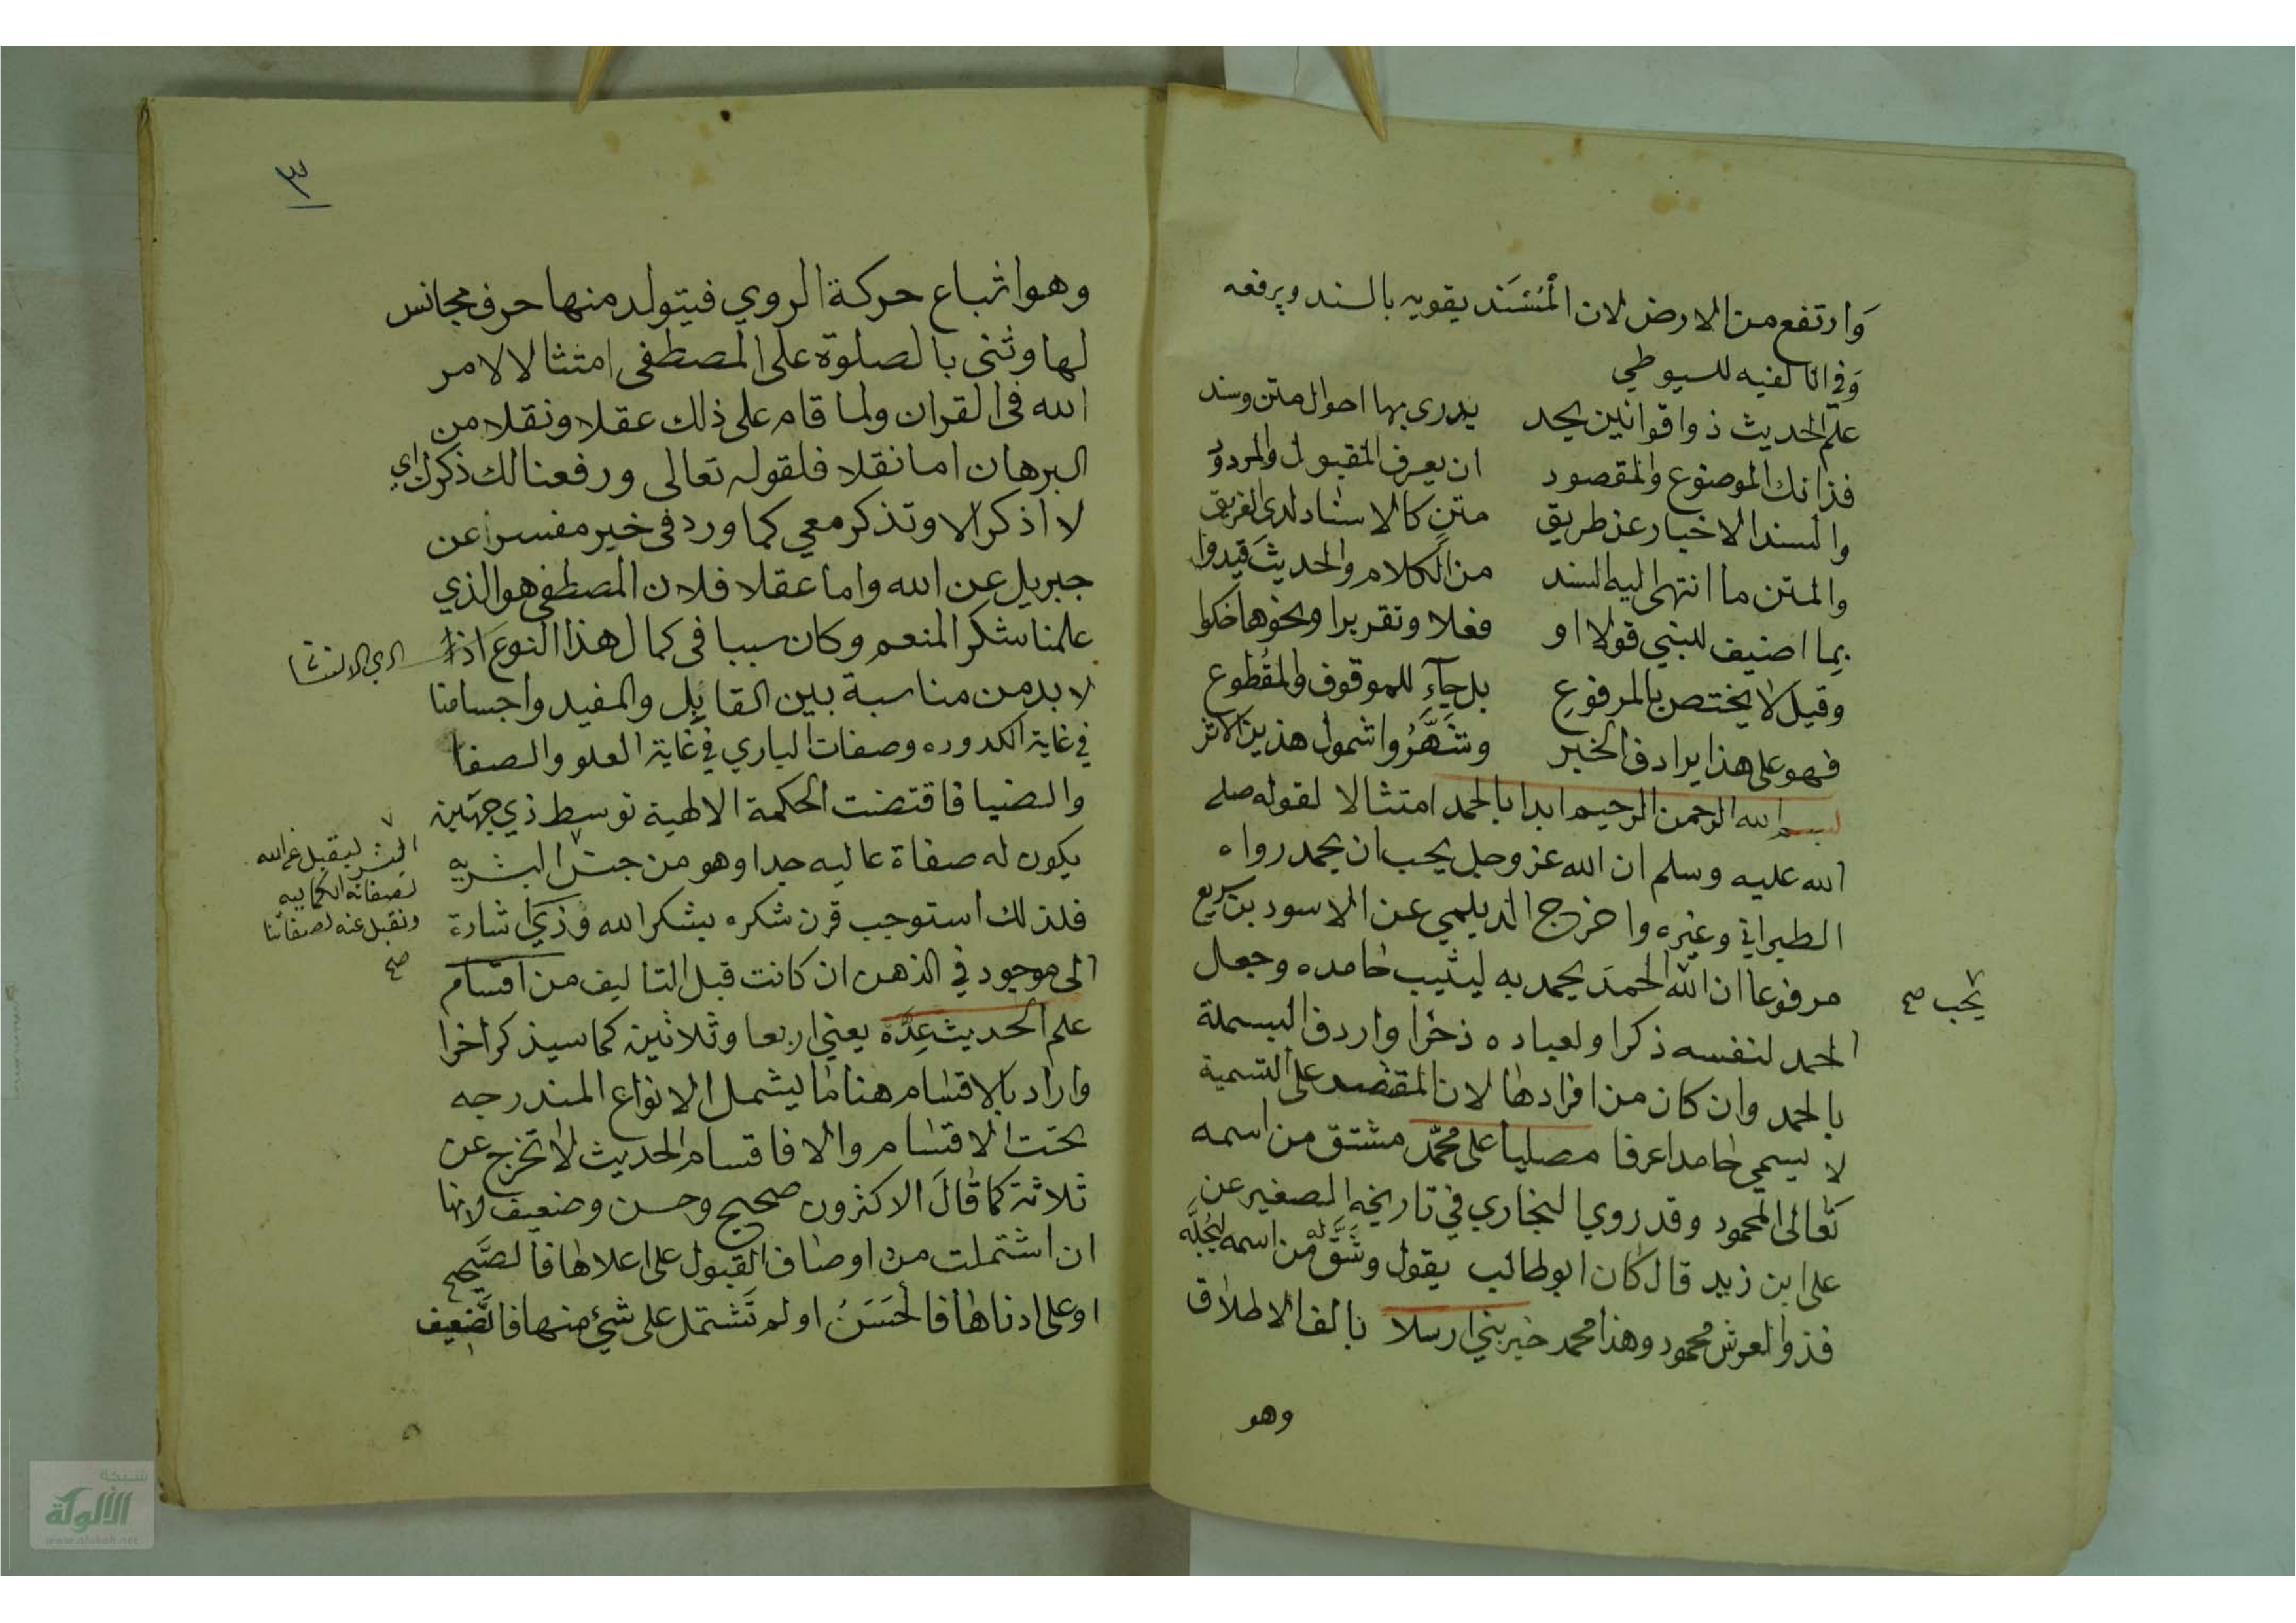 وارتفع من الارض لان المُسْنَد يقويه بالسند ويرفعه
وفي الالفيه للسيوطي
علم الحديث ذوا قوانين يحد يدرى بها احوال متن وسند
فذانك الموضوع والمقصود ان يعرف المقبول والمردود
والسند الاخبار عن طريق متن كالاسناد لدى الفريق
والمتن ما انتهى اليه السند من الكلام والحديث قيدوا
بما اضيف للنبي قولا او فعلا وتقريرا ونحوها حكوا
وقيل لا يختص بالمرفوع بل جآء للموقوف والمقطوع
فهو على هذا يرادف الخبر وشَهَّرُوا شمول هذين الاثر
بسم الله الرحمن الرحيم ابدا بالحمد امتثالا لقوله صلى
الله عليه وسلم ان الله عز وجل يحب ان يحمد رواه
الطبراني وغيره واخرج الديلمي عن الاسود بن سريع
مرفوعا ان الله الحمدَ يحمد به ليثيب حامده وجعل
يحب صح
الحمد لنفسه ذكرا ولعباده ذخرا واردف البسملة
بالحمد وان كان من افرادها لان المقتصد على التسمية
لا يسمي حامدا عرفا مصليا على محمّد مشتق من اسمه
تعالى المحمود وقد روي البخاري في تاريخه الصغير عن
على ابن زيد قال كان ابو طالب يقول وشَقَّ له من اسمه ليُجلَّه
فذوا العرش محمود وهذا محمد خير بني ارسلا بالف الاطلاق
وهو
٣
وهو اشباع حركة الروي فيتولد منها حرف مجانس
لها وثنى بالصلوة على المصطفى امتثالا لامر
الله فى القران ولما قام على ذلك عقلا ونقلا من
البرهان اما نقلا فلقوله تعالى ورفعنا لك ذكرك اي
لا اذكر الا وتذكر معي كما ورد فى خير مفسرا عن
جبريل عن الله واما عقلا فلان المصطفى هو الذي
علمنا شكر المنعم وكان سببا فى كمال هذا النوع اذ
لا بد من مناسبة بين القابل والمفيد واجسامنا
في غاية الكدوره وصفات الباري في غاية العلو والصفا
والضيا فاقتضت الحكمة الالهية توسط ذي جهتين
يكون له صفاة عاليه جدا وهو من جنس البشريه
البشر ليقبل عن الله
لصفاته الكماليه
ونقبل عنه لصفاتنا
صح
فلذلك استوجب قرن شكره بشكر الله وذي اشارة
الى موجود في الذهن ان كانت قبل التاليف من اقسام
علم الحديث عِدَّه يعني اربعا وثلاثين كما سيذكر اخرا
واراد بالاقسام هنا ما يشمل الانواع المندرجه
تحت الاقسام والا فاقسام الحديث لا تخرج عن
ثلاثة كما قال الاكثرون صحيح وحسن وضعيف لانها
ان اشتملت من اوصاف القبول على اعلاها فالصَّحيح
او على ادناها فالحَسَنُ او لم تَشتمل على شئ منها فالضَّعيف